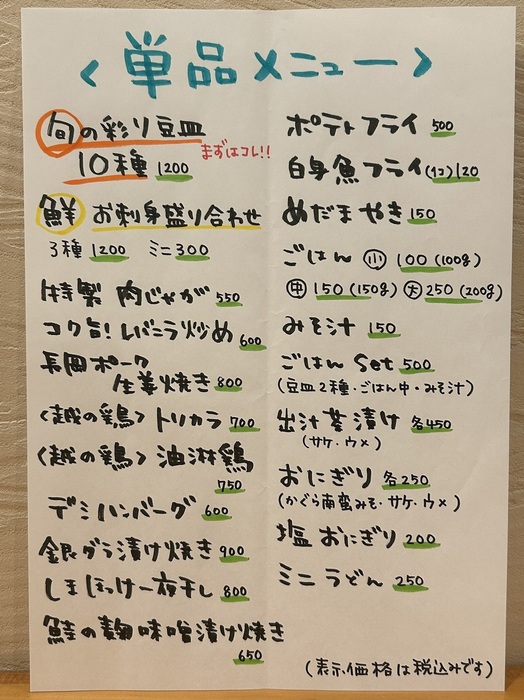 〈単品メニュー〉
旬の彩り豆皿
10種 1200 まずはコレ!!
鮮 お刺身盛り合わせ
3種 1200 ミニ 300
特製 肉じゃが 550
コク旨!レバニラ炒め 600
長岡ポーク
生姜焼き 800
〈越の鶏〉トリカラ 700
〈越の鶏〉油淋鶏
750
デミハンバーグ 600
銀ダラ漬け焼き 900
しまほっけ一夜干し 800
鮭の麹味噌漬け焼き
650
ポテトフライ 500
白身魚フライ(1コ)120
めだまやき 150
ごはん ㊀小 100(100g)
㊥ 150(150g) 大 250(200g)
みそ汁 150
ごはんSet 500
(豆皿2種・ごはん中・みそ汁)
出汁茶漬け 各450
(サケ・ウメ)
おにぎり 各250
(かぐら南蛮みそ・サケ・ウメ)
塩おにぎり 200
ミニうどん 250
(表示価格は税込みです)